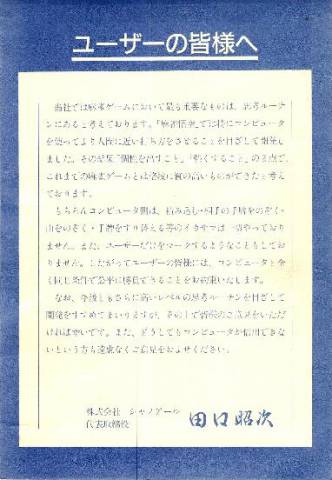 ユーザーの皆様へ
当社では麻雀ゲームにおいて最も重要なものは、思考ルーチン
にあると考えております。「麻雀悟空」では特にコンピュータ
を使ってより人間に近い打ち方をさせることを目ざして開発し
ました。その結果「個性を出すこと」「強くすること」の2点で、
これまでの麻雀ゲームとは格段に質の高いものができたと考え
ております。
もちろんコンピュータ側は、積み込し・相手の手牌をのぞく・
山をのぞく・手牌をすり替える等のイカサマは一切やっており
ません。また、ユーザーだけをマークするようなこともしてお
りません。したがってユーザーの皆様には、コンピュータと全
く同じ条件で公平に勝負できることをお約束いたします。
なお、今後ともさらに高いレベルの思考ルーチンを目ざして
開発をすすめてまいりますが、その上で皆様のご意見をいただ
ければ幸いです。また、どうしてもコンピュータが信用できな
いという方も遠慮なくご意見をおよせください。
株式会社 シャノアール
代表取締役 田口昭次